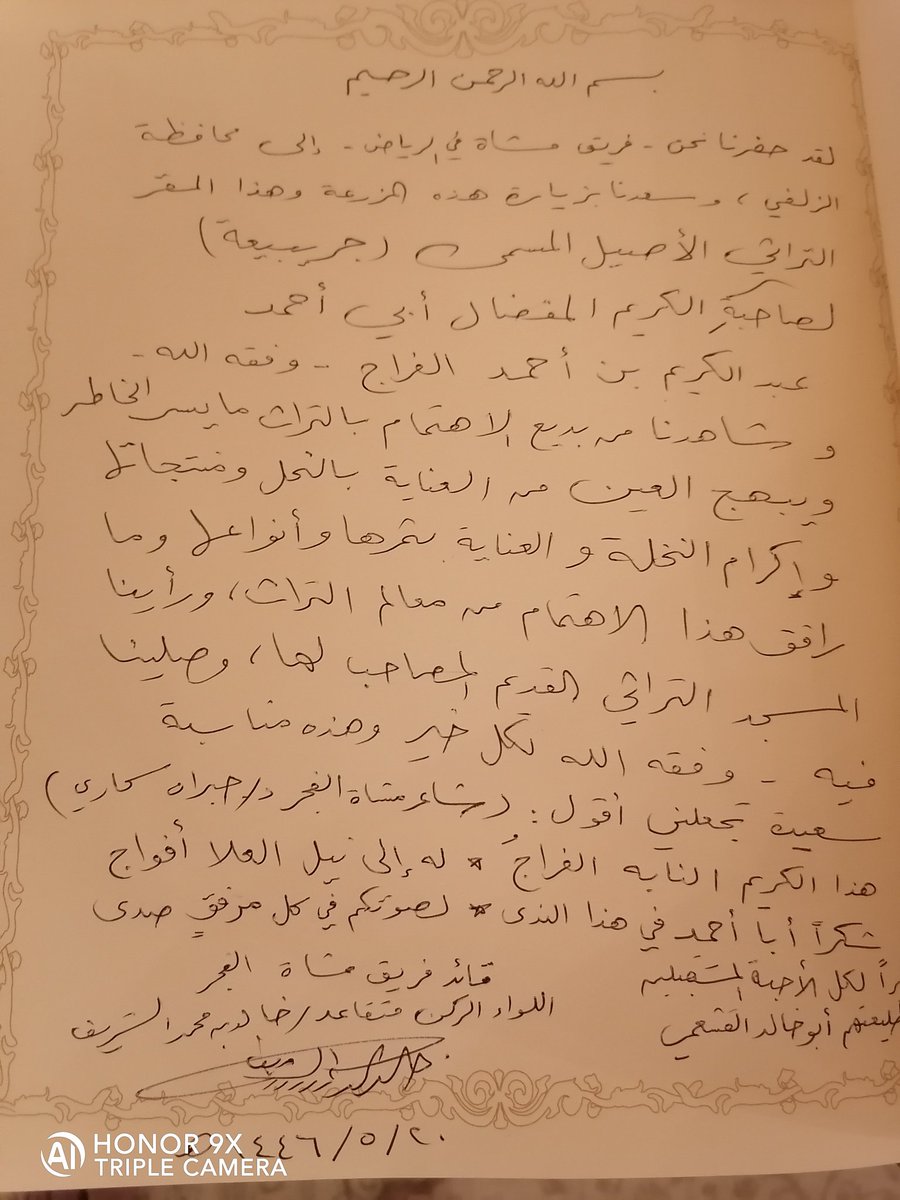 بسم الله الرحمن الرحيم
لقد حضرنا نحن - فريق مشاة في الرياض - إلى محافظة
الزلفي، وسعدنا بزيارة هذه المزرعة وهذا المقر
التراثي الأصيل المسمى (جريبيعة)
لصاحبةِ الكريم المفضال أبي أحمد
عبد الكريم بن أحمد الفراج - وفقه الله -
وشاهدنا من بديع الاهتمام بالتراث ما يسر الخاطر
ويبهج العين من العناية بالنحل ومنتجاتها
وإكرام النخلة والعناية بتمرها وأنواعها وما
رافق هذا الاهتمام من معالم التراث، ورأينا
المسجد التراثي القديم المصاحب لها، وصلينا
فيه - وفقه الله لكل خير وهذه مناسبة
سعيدة تجعلني أقول: (شاعر مشاة الفجر د/جبران سحاري)
هذا الكريم النابه الفراجُ * له إلى نيل العلا أفواج
شكراً أبا أحمد في هذا الندى * لصوتكم في كل مرفقٍ صدى
لكل الأحبة المستقبلين
أبو خالد القشعمي
قائد فريق مشاة الفجر
اللواء الركن متقاعد/خالد بن محمد الشريف
٤٤٦/٥/٢٠
HONOR 9X
TRIPLE CAMERA